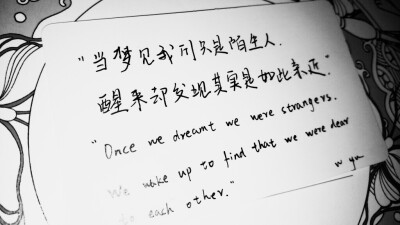 "当梦见我们只是陌生人.
醒来却发现其实是如此亲近."
"Once we dreamt we were strangers.
We wake up to find that we were dear
to each other."
w yu